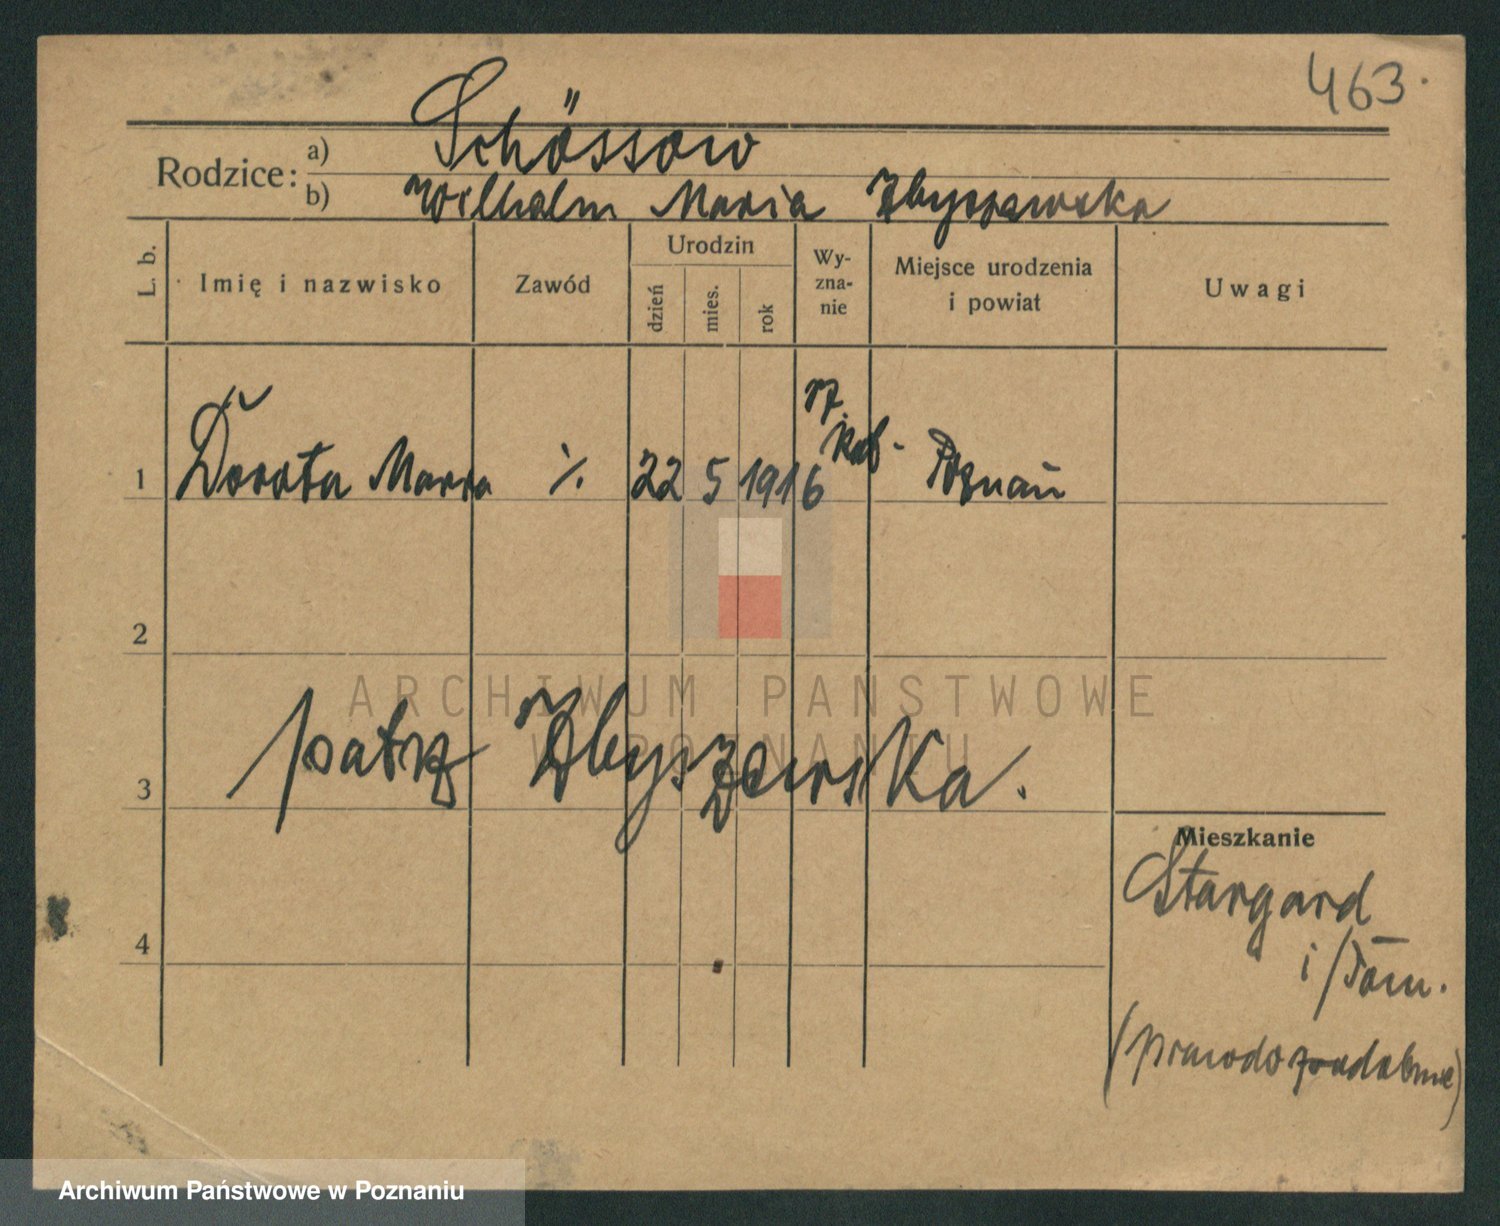 463.
Schössow
Rodzice: a)
b) Wilhelm Maria Zbyszewska
L. b. Imię i nazwisko Zawód Urodzin dzień mies. rok Wy-zna-nie Miejsce urodzenia i powiat Uwagi
rz.
kat.
1 Dorota Maria ./. 22 5 1916 Poznań
2
ARCHIWUM PAŃSTWOWE
W POZNANIU
patrz Zbyszewska.
3
Mieszkanie
Stargard
i/Pom.
4
(prawdopodobnie)
Archiwum Państwowe w Poznaniu